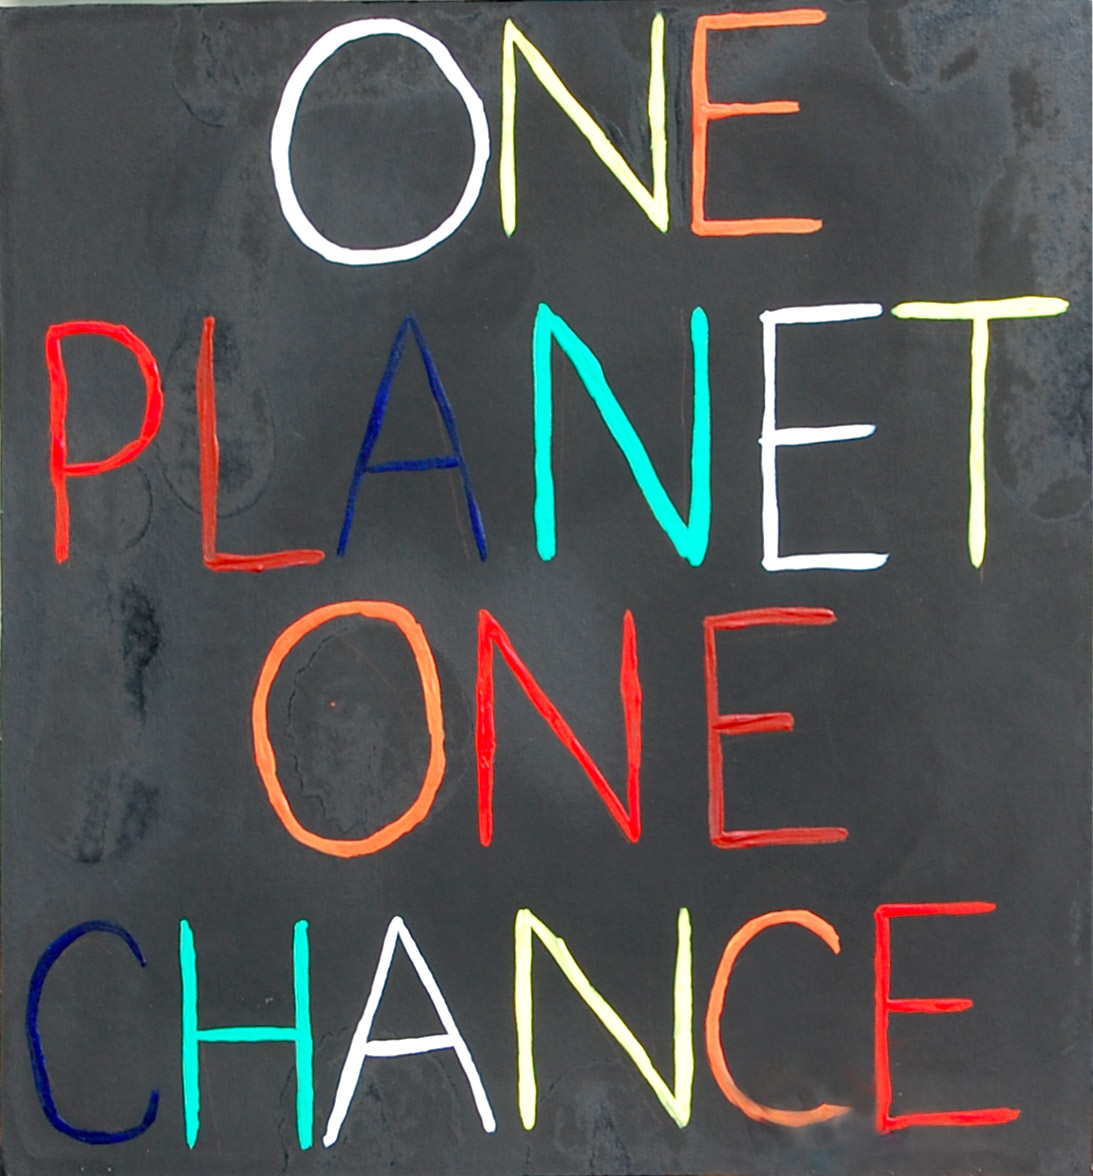 ONE
PLANET
ONE
CHANCE